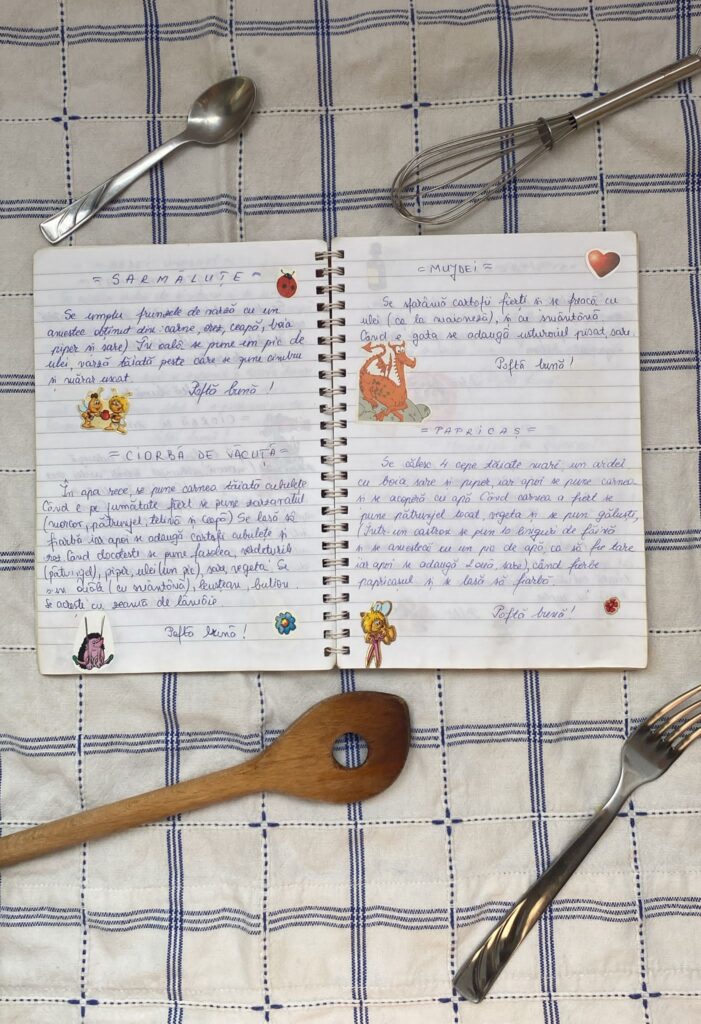 = SARMĂLUȚE =
Se umplu frunzele de varză cu un
amestec obținut din: carne, orez, ceapă, boia
piper și sare) În oală se pune un pic de
ulei, varză tăiată peste care se pune cimbru
și mărar uscat.
Poftă bună !
= CIORBĂ DE VĂCUȚĂ =
În apa rece, se pune carnea tăiată cubulețe
Când e pe jumătate fiert se pune zarzavatul
(morcov, pătrunjel, țelină și ceapă) Se lasă să
fiarbă iar apoi se adaugă cartofi cubulețe și
roș. Când clocotește se pune fasolea, verdețurile
(pătrunjel), piper, ulei (un pic), sare, vegeta. Se
(cu smântână), leuștean, bulion.
Se acrește cu zeamă de lămâie
Poftă bună !
= MUJDEI =
Se sfarâmă cartofii fierți și se freacă cu
ulei (ca la maioneză), și cu smântână.
Când e gata se adaugă usturoiul pisat, sare.
Poftă bună !
= PAPRICAȘ =
Se călesc 4 cepe tăiate mare, un ardei
cu boia sare și piper, iar apoi se pune carnea
și se acoperă cu apă. Când carnea a fiert se
pune pătrunjel tocat, vegeta și se pun găluști,
(într-un castron se pun 10 linguri de făină
și se amestecă cu un pic de apă, ca să fie tare
iar apoi se adaugă 2 ouă, sare), când fierbe
papricașul și se lasă să fiarbă.
Poftă bună !